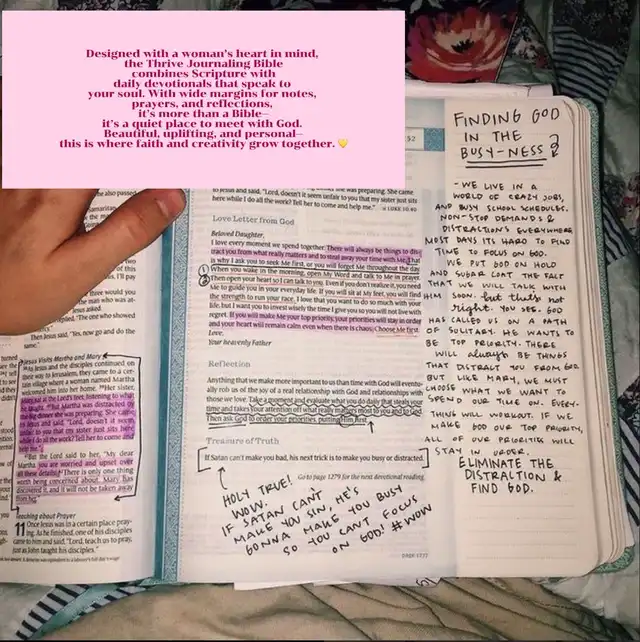 Designed with a woman's heart in mind,
the Thrive Journaling Bible
combines Scripture with
daily devotionals that speak to
your soul. With wide margins for notes,
prayers, and reflections,
it's more than a Bible—
it's a quiet place to meet with God.
Beautiful, uplifting, and personal—
this is where faith and creativity grow together. 💛
also passed
three would you
man who was at-
Jesus asked.
replied, "The one who showed
Then Jesus said, "Yes, now go and do the
same."
Jesus Visits Martha and Mary
As Jesus and the disciples continued on
their way to Jerusalem, they came to a cer-
tain village where a woman named Martha
welcomed him into her home. Her sister,
sat at the Lord's feet, listening to what
he taught. But Martha was distracted by
the big dinner she was preparing. She came
to Jesus and said, "Lord, doesn't it seem
unfair to you that my sister just sits here
while I do all the work? Tell her to come and
help me."
But the Lord said to her, "My dear
Martha, you are worried and upset over
all these details! There is only one thing
worth being concerned about. Mary has
discovered it, and it will not be taken away
from her."
Teaching about Prayer
11 Once Jesus was in a certain place pray-
ing. As he finished, one of his disciples
came to him and said, "Lord, teach us to pray,
just as John taught his disciples."
52
to Jesus and said, "Lord, doesn't it seem unfair to you that my sister just sits
here while I do all the work? Tell her to come and help me." LUKE 10:40
Love Letter from God
Beloved Daughter,
I love every moment we spend together. There will always be things to dis-
tract you from what really matters and to steal away your time with Me. That
is why I ask you to seek Me first, or you will forget Me throughout the day.
1 When you wake in the morning, open My Word and talk to Me in prayer.
2 Then open your heart so I can talk to you. Even if you don't realize it, you need
Me to guide you in your everyday life. If you will sit at My feet, you will find
the strength to run your race. I love that you want to do so much with your
life, but I want you to invest wisely the time I give you so you will not live with
regret. If you will make Me your top priority, your priorities will stay in order
and your heart will remain calm even when there is chaos. Choose Me first.
Love,
Your heavenly Father
Reflection
Anything that we make more important to us than time with God will eventu-
ally rob us of the joy of a real relationship with God and relationships with
those we love. Take a moment and evaluate what you do daily that steals your
time and takes your attention off what really matters most to you and to God.
Then ask God to order your priorities, putting Him first.
Treasure of Truth
If Satan can't make you bad, his next trick is to make you busy or distracted.
Go to page 1279 for the next devotional reading.
HOLY TRUE!
WOW.
IF SATAN CAN'T
MAKE YOU SIN, HE'S
GONNA MAKE YOU BUSY
SO YOU CAN'T FOCUS
ON GOD! #WOW
FINDING GOD
IN THE
BUSY-NESS
- WE LIVE IN A
WORLD OF CRAZY JOBS,
AND BUSY SCHOOL SCHEDULES.
NON-STOP DEMANDS &
DISTRACTIONS EVERYWHERE
MOST DAYS ITS HARD TO FIND
TIME TO FOCUS ON GOD.
WE PUT GOD ON HOLD
AND SUGAR COAT THE FACT
THAT WE WILL TALK WITH
HIM SOON. but thats not
right. YOU SEE. GOD
HAS CALLED US ON A PATH
OF SOLITARY. HE WANTS TO
BE TOP PRIORITY. THERE
WILL always BE THINGS
THAT DISTRACT YOU FROM GOD
BUT LIKE MARY, WE MUST
CHOOSE WHAT WE WANT TO
SPEND OUR TIME ON. EVERY-
THING WILL WORKOUT. IF WE
MAKE GOD OUR TOP PRIORITY,
ALL OF OUR PRIORITIES WILL
STAY IN ORDER.
ELIMINATE THE
DISTRACTION &
FIND GOD.